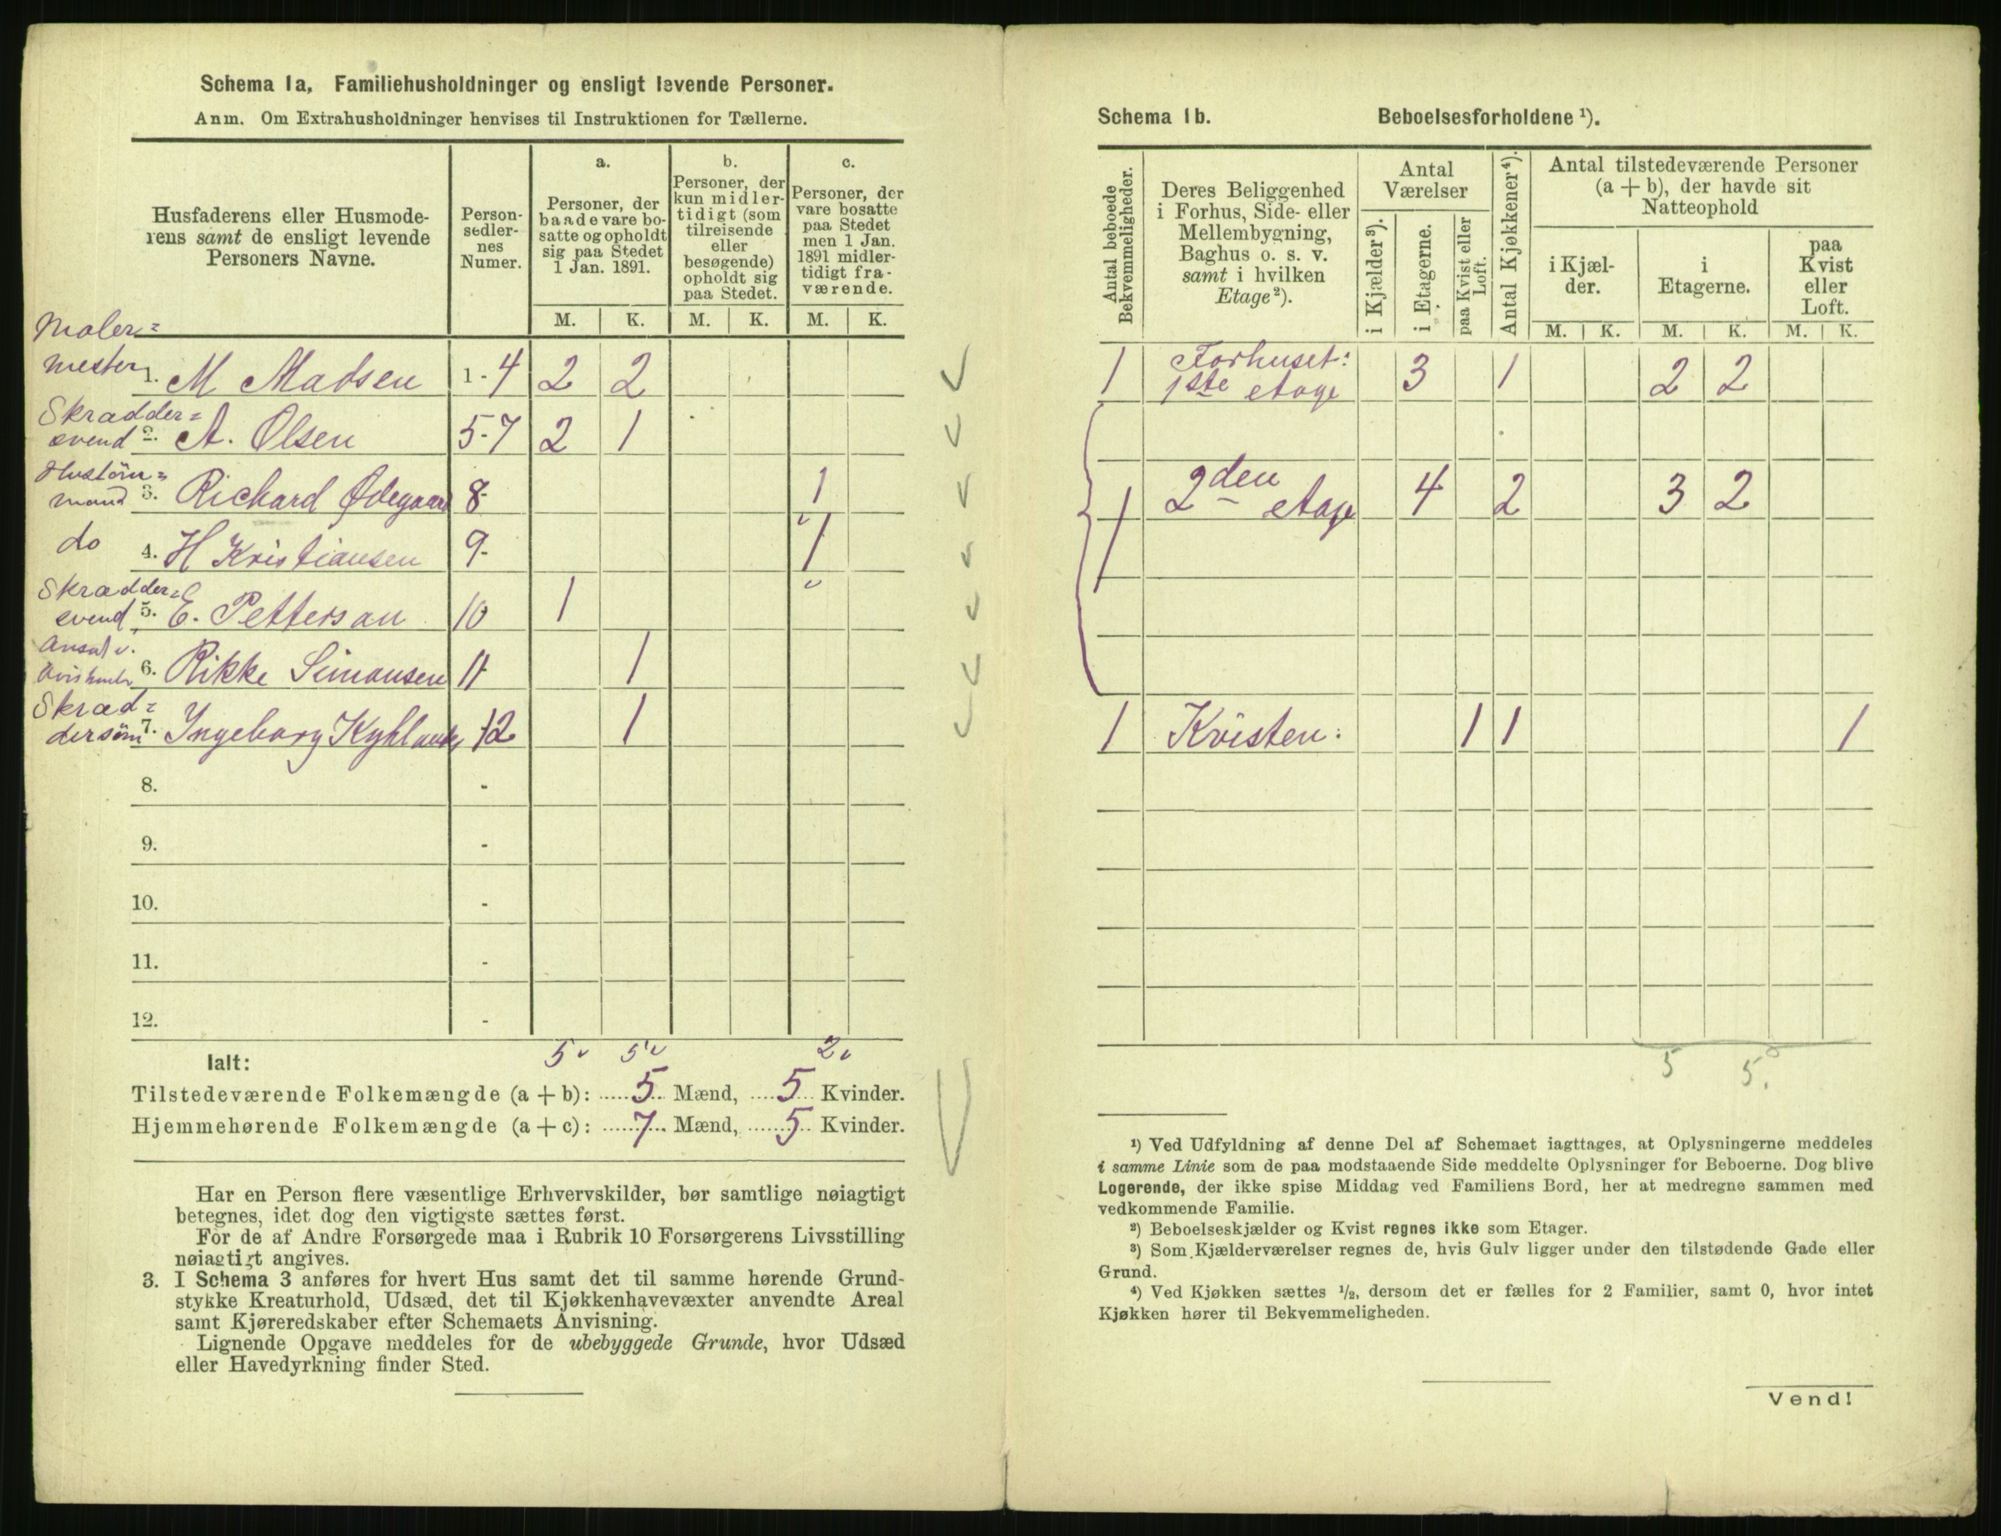 Schema 1a, Familiehusholdninger og ensligt levende Personer.
Anm. Om Extrahusholdninger henvises til Instruktionen for Tællerne.
Husfaderens eller Husmode-
rens samt de ensligt levende
Personers Navne.
Person-
sedler-
nes
Numer.
a.
Personer, der
baade vare bo-
satte og opholdt
sig paa Stedet
1 Jan. 1891.
b.
Personer, der
kun midler-
tidigt (som
tilreisende
eller
besøgende)
opholdt sig
paa Stedet.
c.
Personer, der
vare bosatte
paa Stedet
men 1 Jan.
1891 midler-
tidigt fra-
værende.
M. K. M. K. M. K.
Maler=
mester 1. M Madsen 1-4 2 2
Skrædder=
svend 2. A. Olsen 5-7 2 1
mand 3. Richard Ødegaard 8- 1
do 4. H Kristiansen 9- 1
Skrædder=
svend 5. E. Petterson 10 1
6. Rikke Simonsen 11 1
Skræd=
7. Ingeborg 12 1
8. -
9. -
10. -
11. -
12. -
Ialt: 5 5 2
Tilstedeværende Folkemængde (a + b): 5 Mænd, 5 Kvinder.
Hjemmehørende Folkemængde (a + c): 7 Mænd, 5 Kvinder.
Har en Person flere væsentlige Erhvervskilder, bør samtlige nøiagtigt
betegnes, idet dog den vigtigste sættes først.
For de af Andre Forsørgede maa i Rubrik 10 Forsørgerens Livsstilling
nøiagtigt angives.
3. I Schema 3 anføres for hvert Hus samt det til samme hørende Grund-
stykke Kreaturhold, Udsæd, det til Kjøkkenhavevæxter anvendte Areal
samt Kjøreredskaber efter Schemaets Anvisning.
Lignende Opgave meddeles for de ubebyggede Grunde, hvor Udsæd
eller Havedyrkning finder Sted.
Schema 1b. Beboelsesforholdene ¹).
Antal beboede
Bekvemmeligheder.
Deres Beliggenhed
i Forhus, Side- eller
Mellembygning,
Baghus o. s. v.
samt i hvilken
Etage ²).
Antal
Værelser
i Kjælder ³).
i Etagerne.
paa Kvist eller
Loft.
Antal Kjøkkener ⁴).
Antal tilstedeværende Personer
(a + b), der havde sit
Natteophold
i Kjæl-
der.
i
Etagerne.
paa
Kvist
eller
Loft.
M. K. M. K. M. K.
1 Forhuset:
1ste etage 3 1 2 2
1 2den etage 4 2 3 2
1 Kvisten: 1 1 1
5 5.
¹) Ved Udfyldning af denne Del af Schemaet iagttages, at Oplysningerne meddeles
i samme Linie som de paa modstaaende Side meddelte Oplysninger for Beboerne. Dog blive
Logerende, der ikke spise Middag ved Familiens Bord, her at medregne sammen med
vedkommende Familie.
²) Beboelseskjælder og Kvist regnes ikke som Etager.
³) Som Kjælderværelser regnes de, hvis Gulv ligger under den tilstødende Gade eller
Grund.
⁴) Ved Kjøkken sættes ½, dersom det er fælles for 2 Familier, samt 0, hvor intet
Kjøkken hører til Bekvemmeligheden.
Vend!